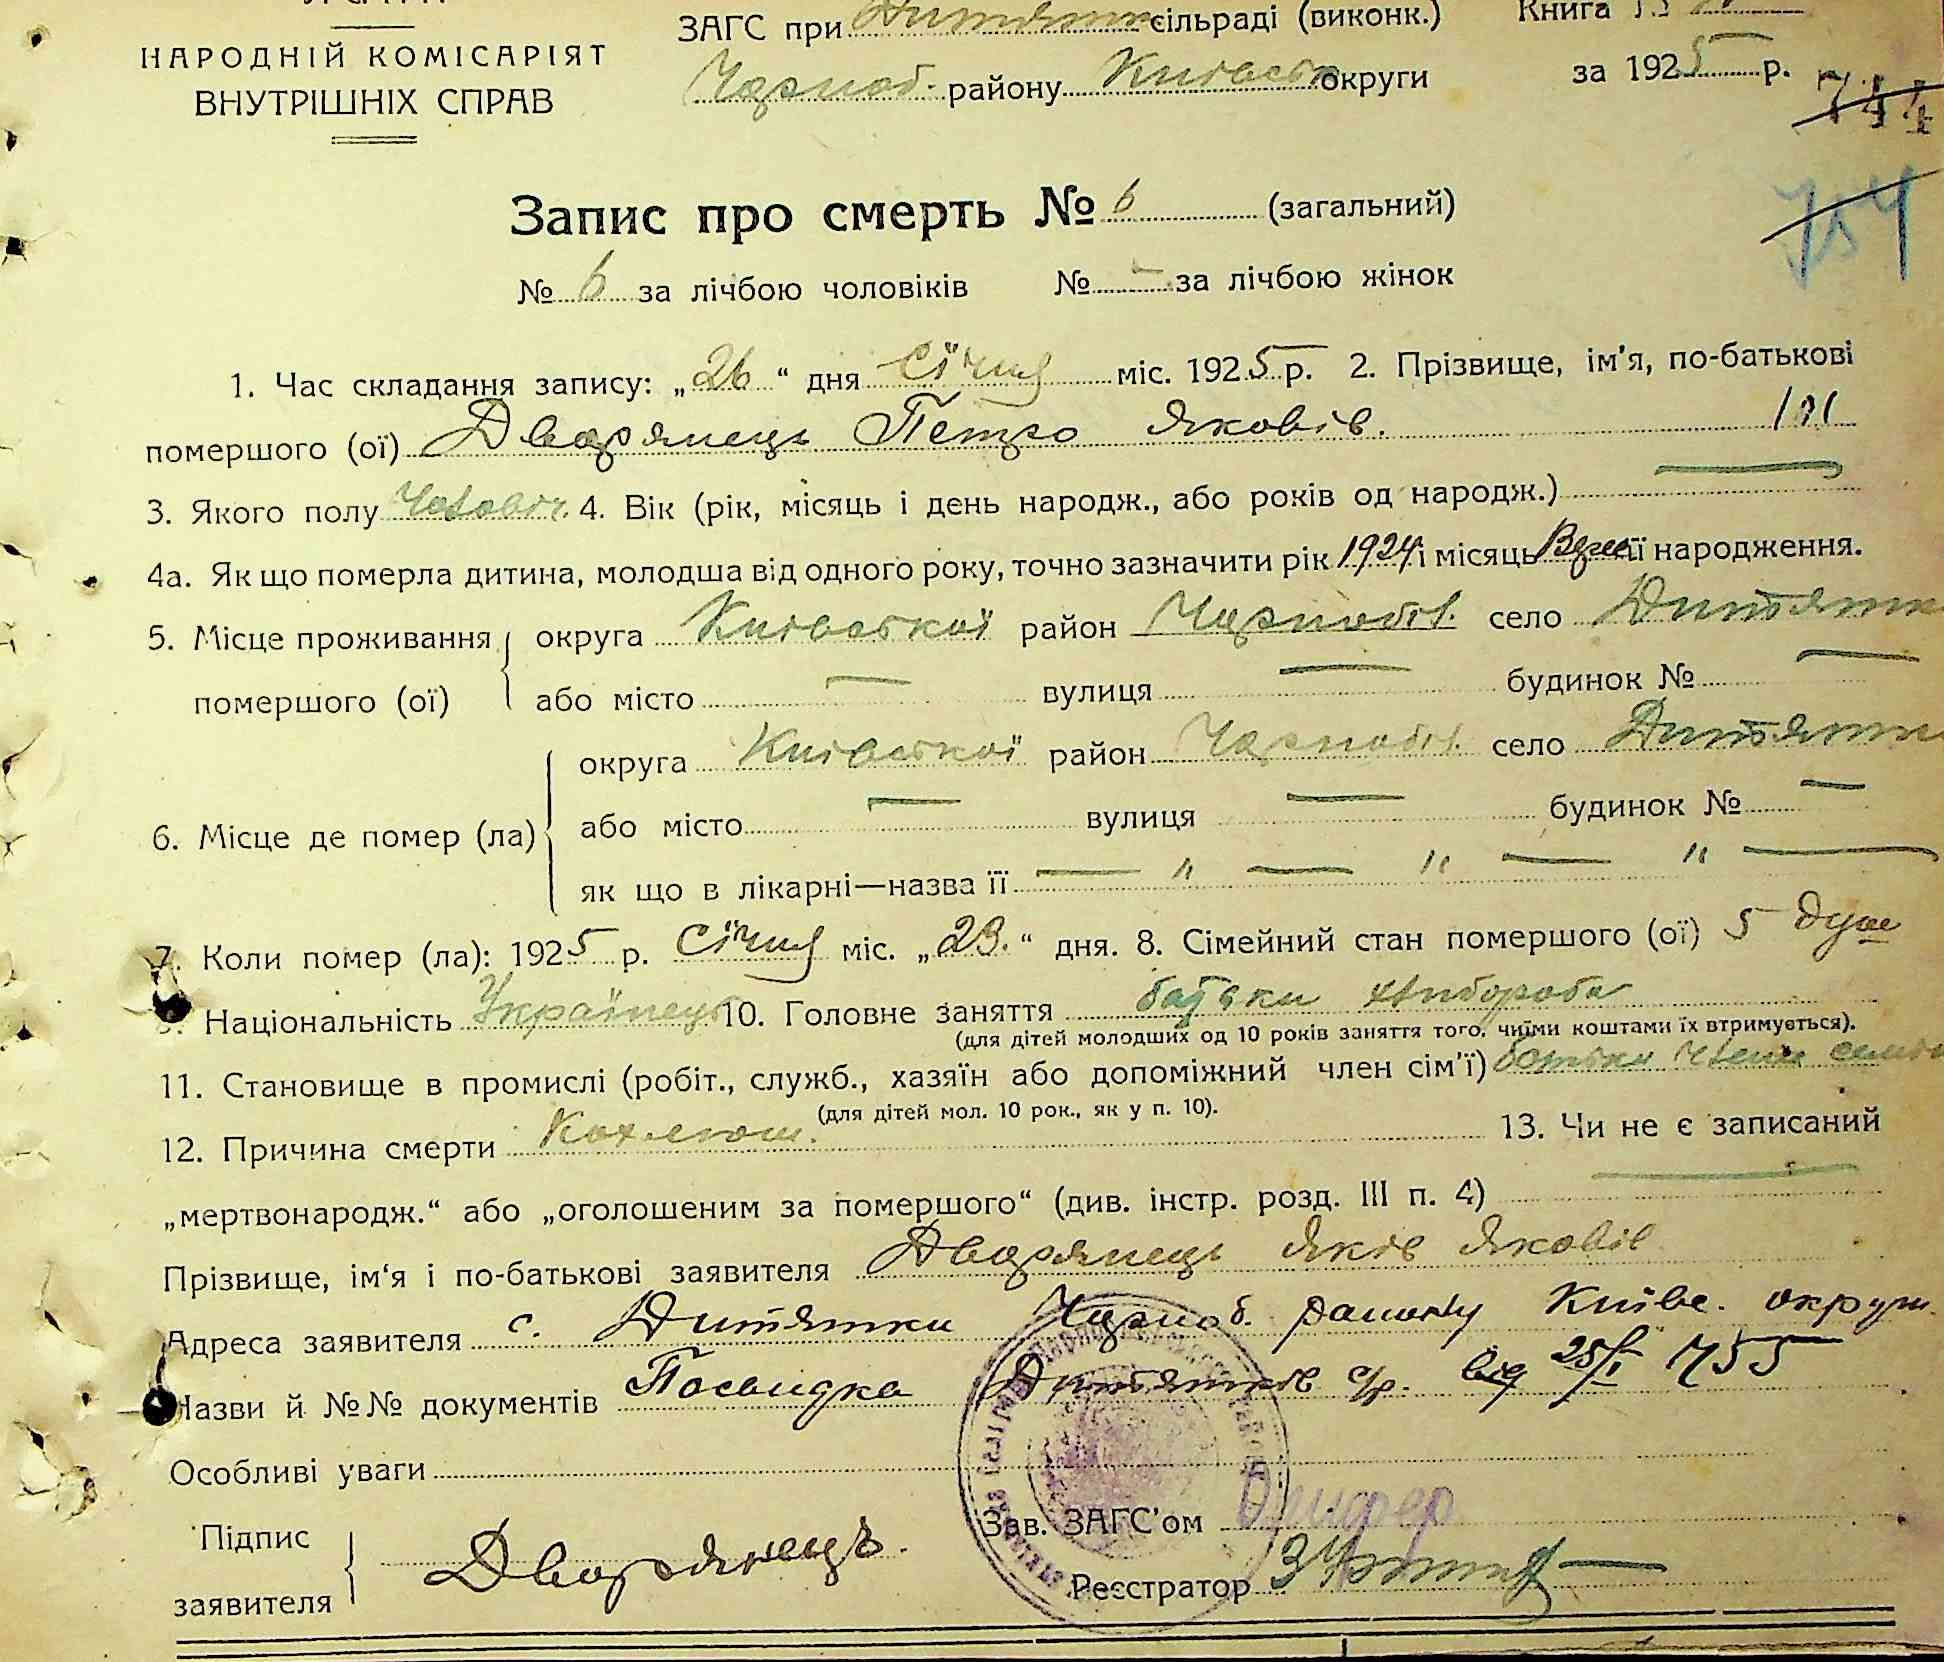 ЗАГС при Дитятк. сільраді (виконк.) Книга
НАРОДНІЙ КОМІСАРІЯТ
ВНУТРІШНІХ СПРАВ
Чорноб. району Київськ округи за 1925 р.
744
Запис про смерть № 6 (загальний)
754
№ 6 за лічбою чоловіків № - за лічбою жінок
1. Час складання запису: „26“ дня Січня міс. 1925 р. 2. Прізвище, ім'я, по-батькові
помершого (ої) Дворянець Петро Яковів.
3. Якого полу Чоловіч. 4. Вік (рік, місяць і день народж., або років од народж.) —
4а. Як що померла дитина, молодша від одного року, точно зазначити рік 1924 і місяць її народження.
5. Місце проживання округа Київської район Чорнобів. село Дитятки
помершого (ої) або місто — вулиця — будинок № —
округа Київської район Чорнобів. село Дитятки
6. Місце де помер (ла) або місто — вулиця — будинок № —
як що в лікарні—назва її — " — " — " —
7. Коли помер (ла): 1925 р. Січня міс. „23.“ дня. 8. Сімейний стан помершого (ої) 5 душ
Національність Українець 10. Головне заняття батьки хлібороби
(для дітей молодших од 10 років заняття того, чиїми коштами їх втримується).
11. Становище в промислі (робіт., служб., хазяїн або допоміжний член сім'ї) батьки члени семьи
(для дітей мол. 10 рок., як у п. 10).
12. Причина смерти Кохлюш. 13. Чи не є записаний
„мертвонародж.“ або „оголошеним за помершого“ (див. інстр. розд. III п. 4) —
Прізвище, ім'я і по-батькові заявителя Дворянець Яків Яковів
Адреса заявителя с. Дитятки Чорноб. району Київс. округи.
Назви й №№ документів Посвидка Дитятків с/р. від 25/I №55
Особливі уваги
Підпис
заявителя Дворянецъ.
Зав. ЗАГС'ом
Реєстратор